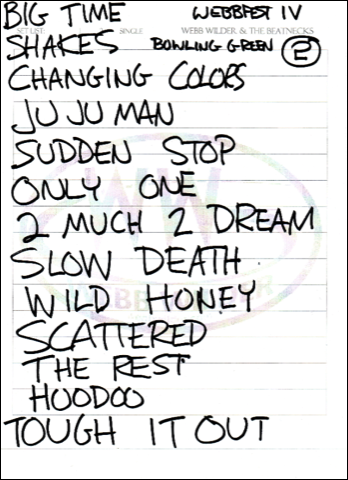 BIG TIME
WEBBFEST IV
SET LIST:
SINGLE
WEBB WILDER & THE BEATNECKS
SHAKES
BOWLING GREEN
2
CHANGING COLORS
JU JU MAN
SUDDEN STOP
ONLY ONE
2 MUCH 2 DREAM
SLOW DEATH
WILD HONEY
SCATTERED
THE REST
HOODOO
TOUGH IT OUT
WW
WEBB WILDER